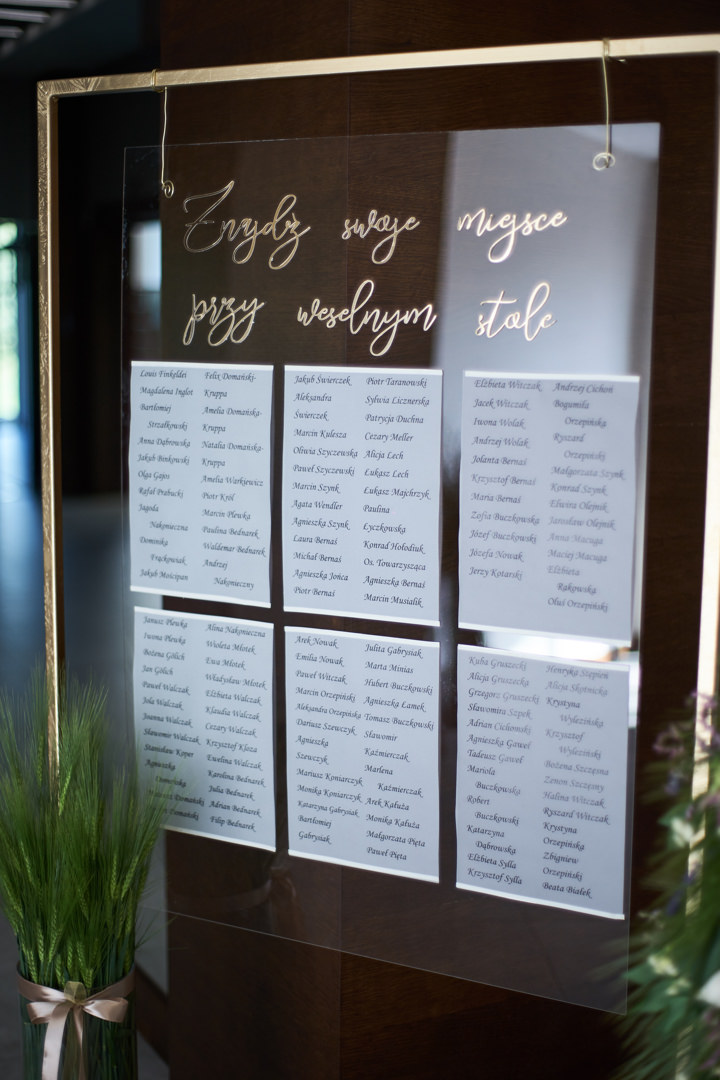 Znajdź swoje miejsce
przy weselnym stole
Louis Finkeldei
Magdalena Inglot
Bartłomiej
Strzałkowski
Anna Dąbrowska
Jakub Binkowski
Olga Gajos
Rafał Prabucki
Jagoda
Nakonieczna
Dominika
Frąckowiak
Jakub Mościpan
Felix Domański-
Kruppa
Amelia Domańska-
Kruppa
Natalia Domańska-
Kruppa
Amelia Wierkiewicz
Piotr Król
Marcin Plewka
Paulina Bednarek
Waldemar Bednarek
Andrzej
Nakonieczny
Jakub Świerczek
Aleksandra
Świerczek
Marcin Kulesza
Oliwia Szyczewska
Paweł Szyczewski
Marcin Szynk
Agata Wendler
Agnieszka Szynk
Laura Bernaś
Michał Bernaś
Agnieszka Jońca
Piotr Bernaś
Piotr Taranowski
Sylwia Licznerska
Patrycja Duchna
Cezary Meller
Alicja Lech
Łukasz Lech
Łukasz Majchrzyk
Paulina
Łyczkowska
Konrad Hołodiuk
Os. Towarzysząca
Agnieszka Bernaś
Marcin Musialik
Elżbieta Witczak
Jacek Witczak
Iwona Wolak
Andrzej Wolak
Jolanta Bernaś
Krzysztof Bernaś
Maria Bernaś
Zofia Buczkowska
Józef Buczkowski
Józefa Nowak
Jerzy Kotarski
Andrzej Cichoń
Bogumiła
Orzepińska
Ryszard
Orzepiński
Małgorzata Szynk
Konrad Szynk
Edwira Olejnik
Jarosław Olejnik
Anna Macuga
Maciej Macuga
Elżbieta
Rakowska
Oluś Orzepiński
Janusz Plewka
Iwona Plewka
Bożena Gölich
Jan Gölich
Paweł Walczak
Jola Walczak
Joanna Walczak
Sławomir Walczak
Stanisław Koper
Agnieszka
Domańska
Domański
Domański
Alina Nakonieczna
Wioleta Młotek
Ewa Młotek
Władysław Młotek
Elżbieta Walczak
Klaudia Walczak
Cezary Walczak
Krzysztof Kloza
Ewelina Walczak
Karolina Bednarek
Julia Bednarek
Adrian Bednarek
Filip Bednarek
Arek Nowak
Emilia Nowak
Paweł Witczak
Marcin Orzepiński
Aleksandra Orzepińska
Dariusz Szewczyk
Agnieszka
Szewczyk
Mariusz Koniarczyk
Monika Koniarczyk
Katarzyna Gabrysiak
Bartłomiej
Gabrysiak
Julita Gabrysiak
Marta Minias
Hubert Buczkowski
Agnieszka Lamek
Tomasz Buczkowski
Sławomir
Kaźmierczak
Marlena
Kaźmierczak
Arek Kałuża
Monika Kałuża
Małgorzata Pięta
Paweł Pięta
Kuba Gruszecki
Alicja Gruszecka
Grzegorz Gruszecki
Sławomira Szpek
Adrian Cichoński
Agnieszka Gaweł
Tadeusz Gaweł
Mariola
Buczkowska
Robert
Buczkowski
Katarzyna
Dąbrowska
Elżbieta Sylla
Krzysztof Sylla
Henryka Stępień
Alicja Skośnicka
Krystyna
Wylezińska
Krzysztof
Wyleziński
Bożena Szczęsna
Zenon Szczęsny
Halina Witczak
Ryszard Witczak
Krystyna
Orzepińska
Zbigniew
Orzepiński
Beata Białek